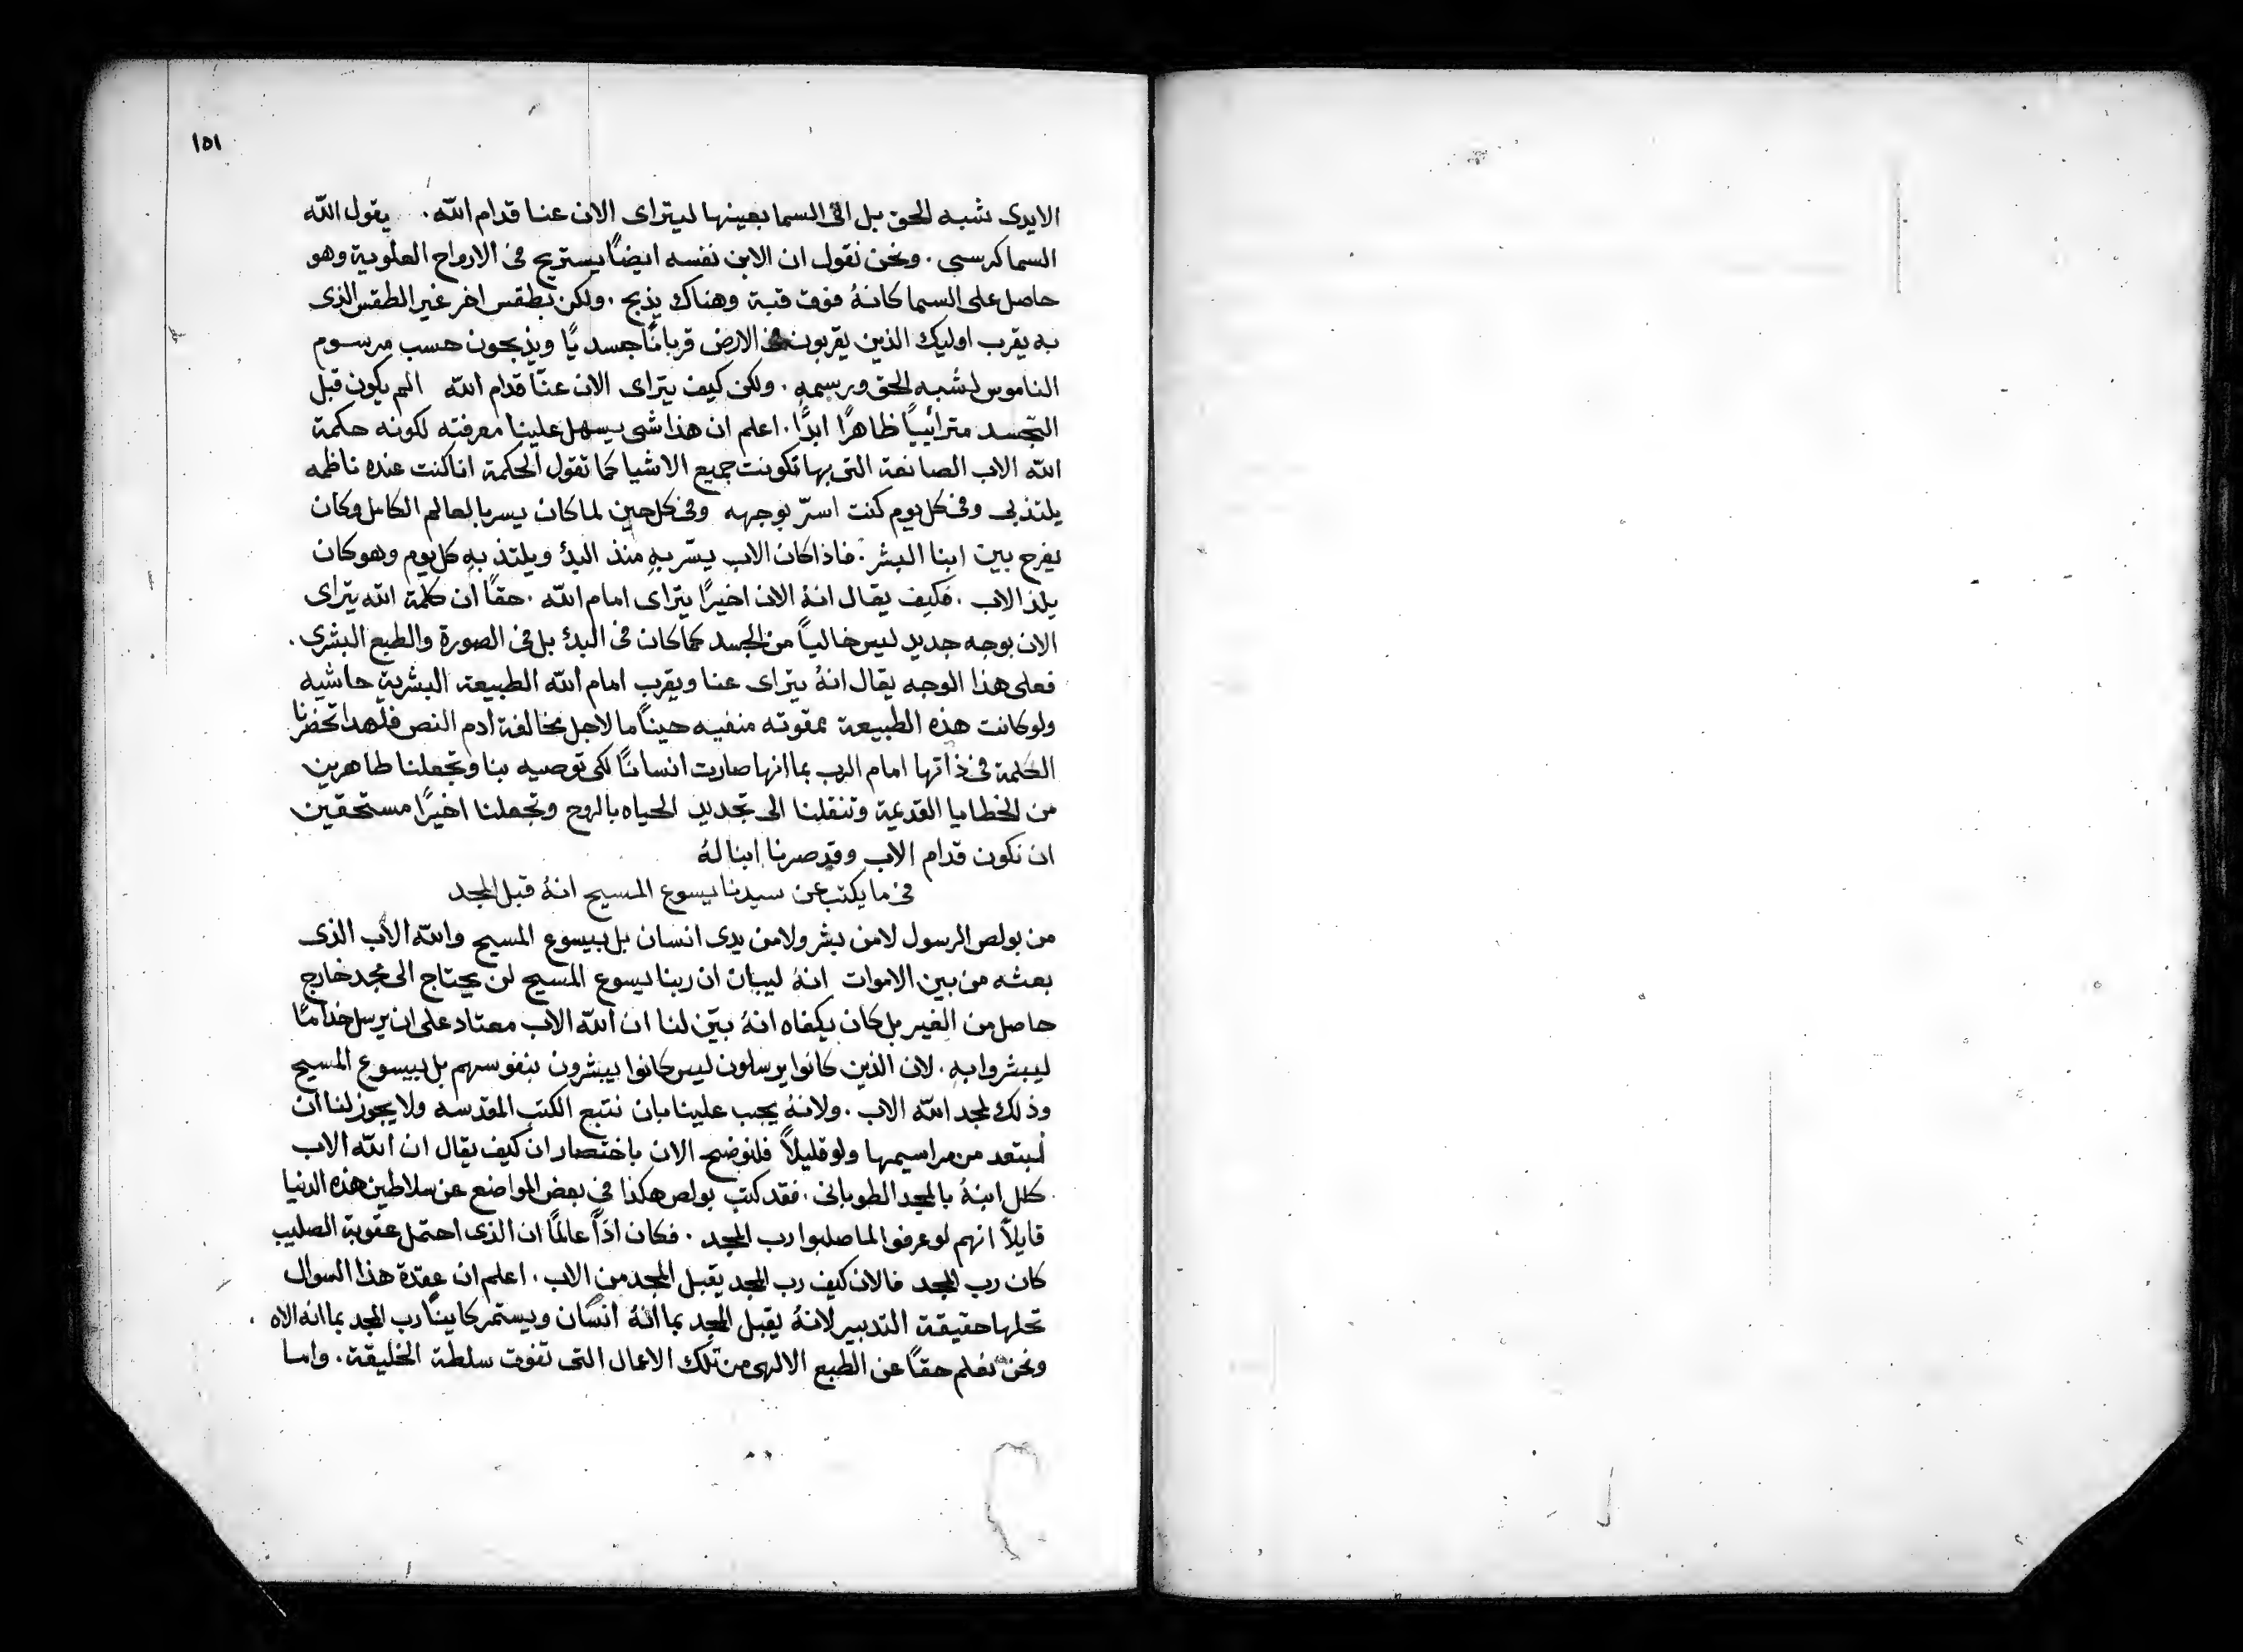 ١٥١
الايدى شبه الحق بل الى السما بعينها ليتراى الان عنا قدام الله. يقول الله
السما كرسى. ونحن نقول ان الابن نفسه ايضًا يستريح فى الارواح العلوية وهو
حاصل على السما كانهُ فوق قبة وهناك يذبح. ولكن بطقس اخر غير الطقس الذى
به يقرب اوليك الذين يقربون فى الارض قربانًا جسديًا ويذبحون حسب مرسوم
الناموس لشبه الحق ورسمه. ولكن كيف يتراى الان عنّا قدام الله الم يكون قبل
التجسد مترائييًا ظاهرًا ابدًا. اعلم ان هذا شى يسهل علينا معرفته لكونه حكمة
الله الاب الصانعة التى بها تكونت جميع الاشيا كما تقول الحكمة انا كنت عنده ناظمه
يلتذ بى وفى كل يوم كنت اسرّ بوجهه وفى كل حين لما كان يسر بالعالم الكامل وكان
يفرح بين ابنا البشر. فاذا كان الاب يسّر بهِ منذ البدُ ويلتذ بهِ كل يوم وهو كان
يلذ الاب. فكيف يقال انهُ الان اخيرًا يتراى امام الله. حقًا ان كلمة الله يتراى
الان بوجه جديد ليس خاليًا من الجسد كما كان فى البدُ بل فى الصورة والطبع البشرى.
فعلى هذا الوجه يقال انهُ يتراى عنا ويقرب امام الله الطبيعة البشرية حاشيه
ولو كانت هذه الطبيعة ممقوته منفيه حينًا ما لاجل مخالفة ادم النص فلهذا تحضرنا
الكلمة فى ذاتها امام الرب بما انها صارت انسانًا لكى توصيه بنا وتجعلنا طاهرين
من الخطايا القديمة وتنقلنا الى تجديد الحياه بالروح وتجعلنا اخيرًا مستحقين
ان نكون قدام الاب وقد صرنا ابنا لهُ
فى ما يكتب عن سيدنا يسوع المسيح انهُ قبل المجد
من بولص الرسول لا من بشر ولا من يدى انسان بل بيسوع المسيح والله الاب الذى
بعثه من بين الاموات انهُ ليبان ان ربنا يسوع المسيح لن يحتاج الى مجد خارج
حاصل من الغير بل كان يكفاه انهُ بيّن لنا ان الله الاب معتاد على ان يرسل خدامًا
ليبشروا بهِ. لان الذين كانوا يرسلون ليس كانوا يبشرون بنفوسهم بل بيسوع المسيح
وذلك لمجد الله الاب. ولانهُ يجب علينا بان نتبع الكتب المقدسه ولا يجوز لنا ان
نبتعد من مراسيمها ولو قليلاً فلنوضح الان باختصار ان كيف يقال ان الله الاب
كلل ابنهُ بالمجد الطوبانى. فقد كتب بولص هكذا فى بعض المواضع عن سلاطين هذه الدنيا
قايلاً انهم لو عرفوا لما صلبوا رب المجد. فكان اذًا عالمًا ان الذى احتمل عقوبة الصليب
كان رب المجد فالان كيف رب المجد يقبل المجد من الاب. اعلم ان عقدة هذا السوال
تحلها حقيقة التدبير لانهُ يقبل المجد بما انهُ انسان ويستمر كاينًا رب المجد بما انه الاه.
ونحن نعلم حقًا عن الطبع الالهى من تلك الاعمال التى تفوق سلطة الخليقة. واما